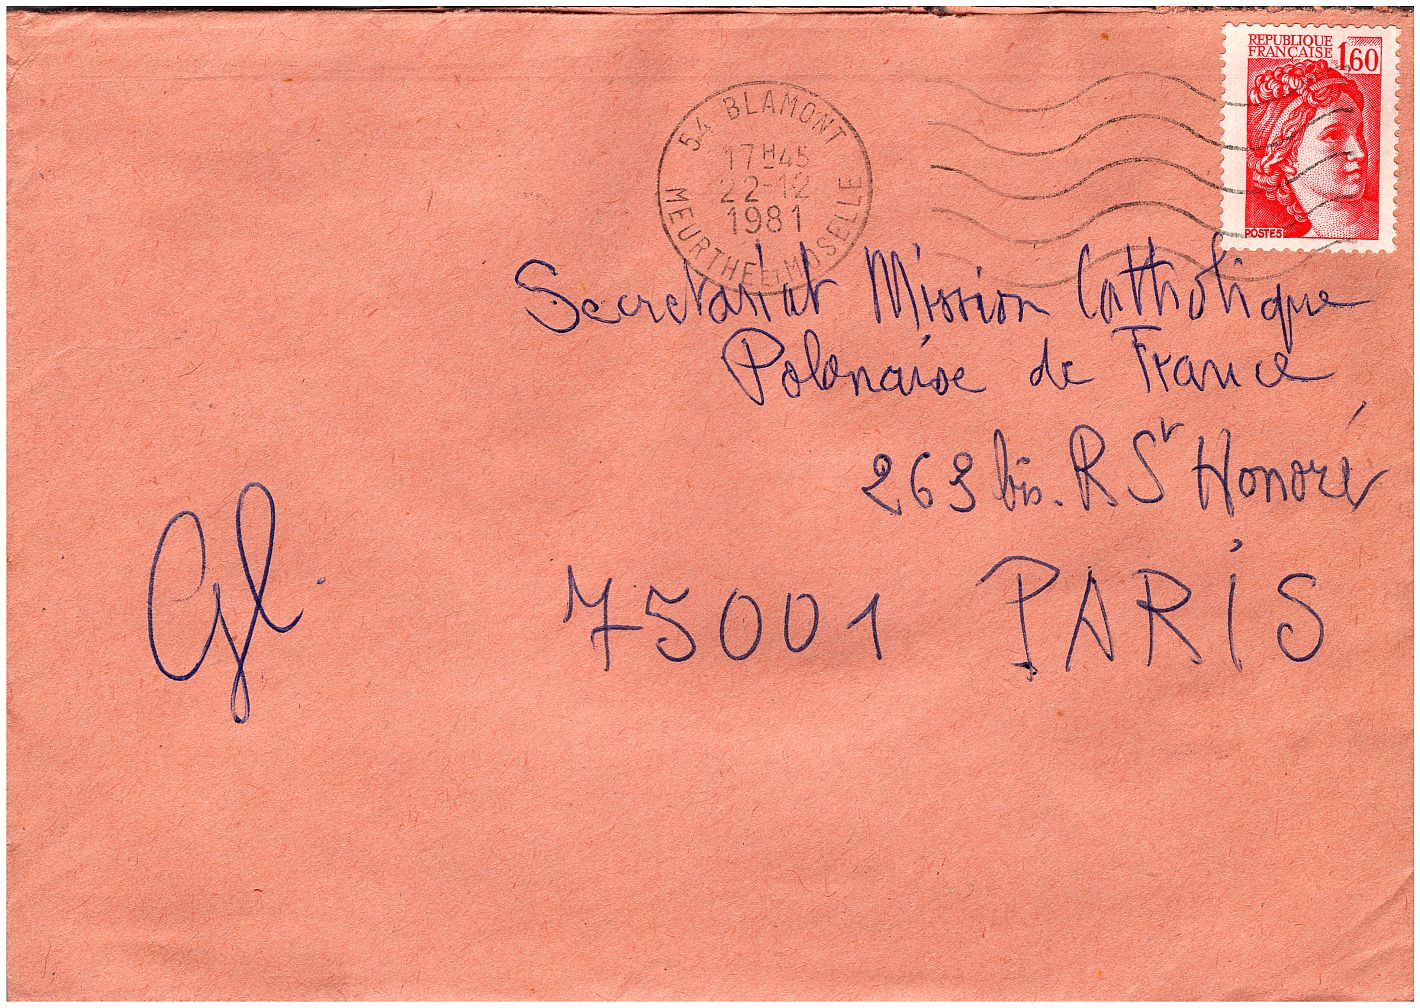 REPUBLIQUE
FRANÇAISE 1,60
POSTES
54 BLAMONT
17H45
22-12
1981
MEURTHE ET MOSELLE
Secretariat Mission Catholique
Polonaise de France
263 bis. R St Honoré
75001 PARIS